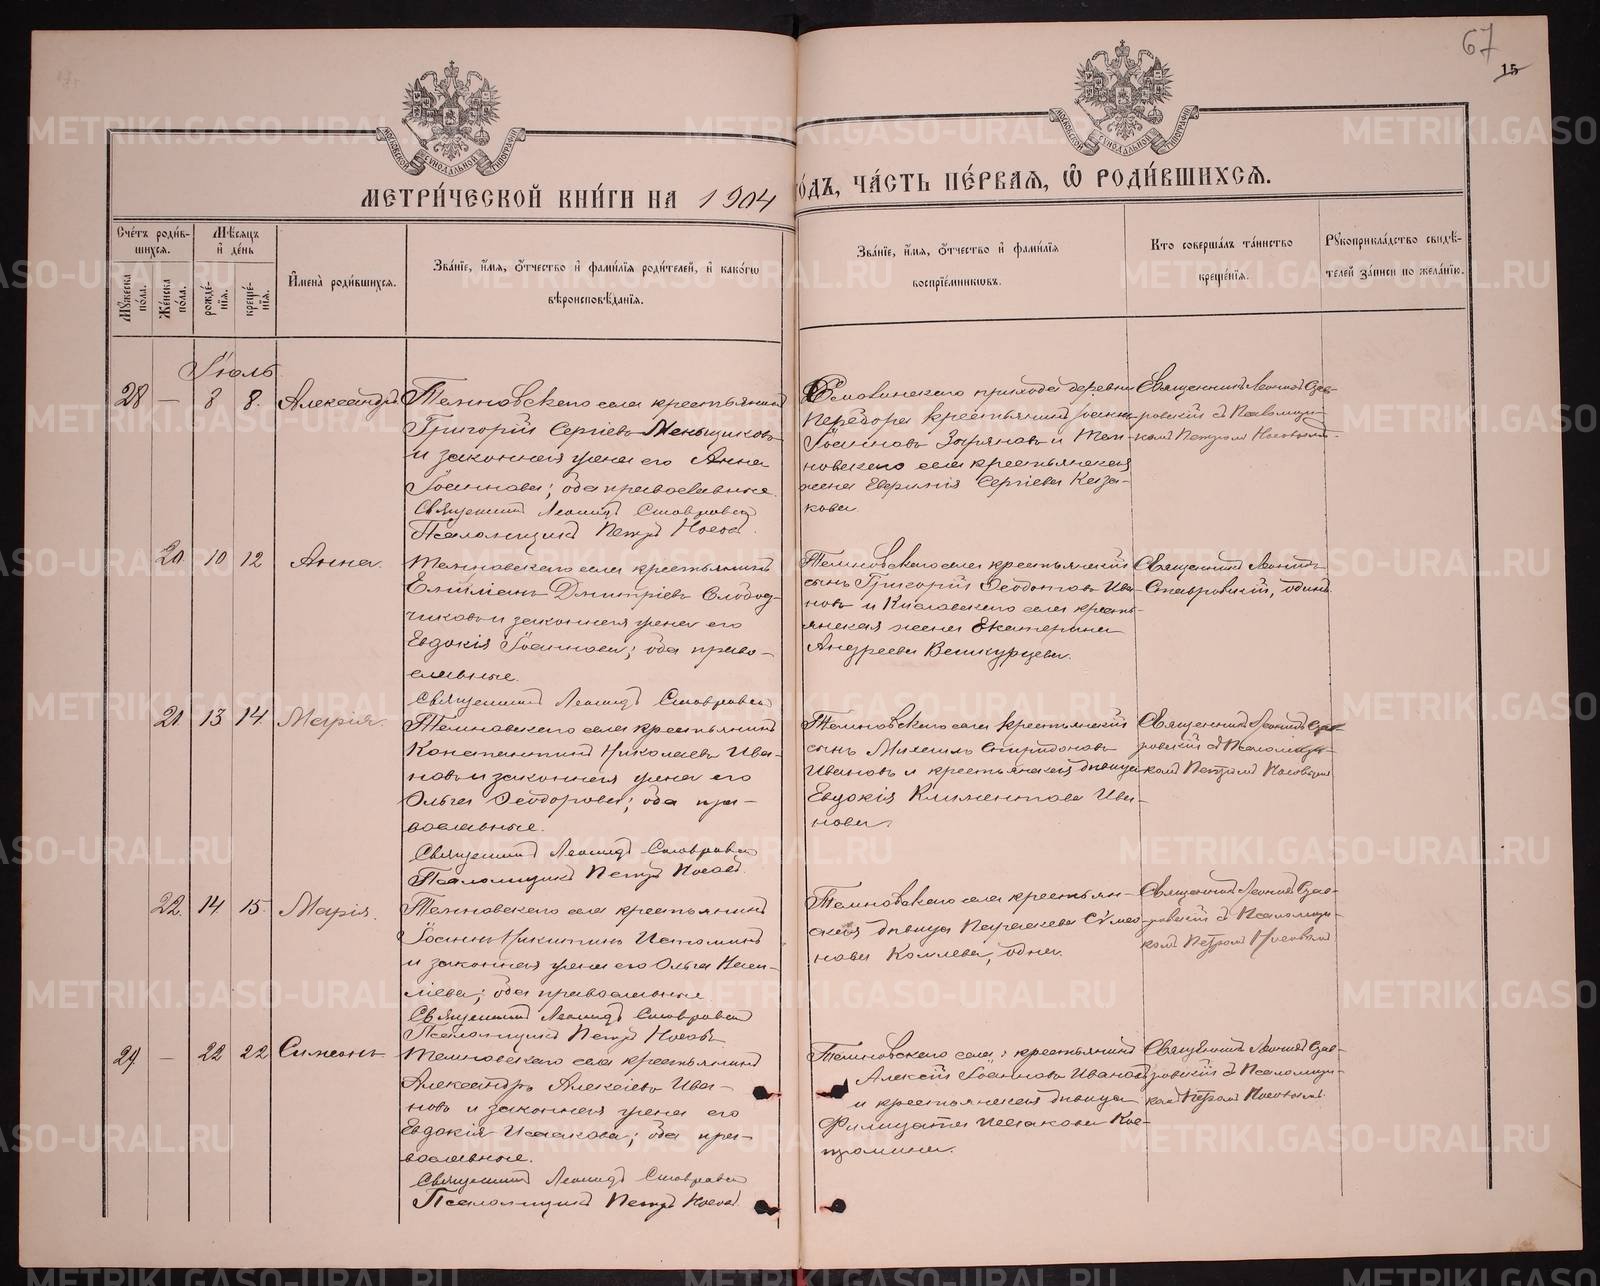 67
15
МОСКОВСКОЙ СУНОДАЛЬНОЙ ТИПОГРАФІИ
МОСКОВСКОЙ СУНОДАЛЬНОЙ ТИПОГРАФІИ
МЕТРИ́ЧЕСКОЙ КНИ́ГИ НА 1904
ГО́ДЪ, ЧА́СТЬ ПЕ́РВАЯ, Ѡ҆ РОДИ́ВШИХСЯ.
Счетъ роди́в-
шихся.
Мꙋжеска по́ла.
Же́нска по́ла.
Мѣсяцъ
и҆ де́нь
рожде́-
нїя.
креще́-
нїя.
И҆мена̀ роди́вшихся.
Зва́нїе, и҆́мя, ѻ҆́тчество и҆ фами́лїя роди́телей, и҆ како́гѡ
вѣроисповѣ́данїя.
Зва́нїе, и҆́мя, ѻ҆́тчество и҆ фами́лїя
воспрїе́мникѡвъ.
Кто соверша́лъ та́инство
креще́нїя.
Рꙋкоприкла́дство свидѣ́-
телей за́писи по жела́нїю.
Іюль
28 — 8 8. Александръ
Темновскаго села крестьянинъ
Григорій Сергіевъ Меньщиковъ
и законная жена его Анна
Іоаннова; оба православные.
Священникъ Леонидъ Ставровскій
Псаломщикъ Петръ Носовъ.
прихода деревни
крестьянинъ
Іоанновъ Зыряновъ и Тем-
новскаго села крестьянская
жена Сергіева Каза-
кова.
Священникъ Леонидъ Став-
ровскій съ Псаломщи-
комъ Петромъ Носовымъ.
20 10 12 Анна.
Темновскаго села крестьянинъ
Дмитріевъ Слобод-
чиковъ и законная жена его
Евдокія Іоаннова; оба право-
славные.
Священникъ Леонидъ Ставровскій
Темновскаго села крестьянскій
сынъ Григорій Ѳеодотовъ Ива-
новъ и Кисловскаго села кресть-
янская жена Екатерина
Андреева
Священникъ Леонидъ
Ставровскій, одинъ.
21 13 14 Марія.
Темновскаго села крестьянинъ
Константинъ Николаевъ Ива-
новъ и законная жена его
Ольга Ѳеодорова; оба пра-
вославные.
Священникъ Леонидъ Ставровскій
Псаломщикъ Петръ Носовъ.
Темновскаго села крестьянскій
сынъ Спиридоновъ
Ивановъ и крестьянская дѣвица
Евдокія Климентова Ива-
нова.
Священникъ Леонидъ Став-
ровскій съ Псаломщи-
комъ Петромъ Носовымъ
22. 14 15. Марія.
Темновскаго села крестьянинъ
Іоаннъ Никитинъ Истоминъ
и законная жена его Ольга Васи-
ліева; оба православные
Священникъ Леонидъ Ставровскій
Псаломщикъ Петръ Носовъ
Темновскаго села крестьян-
ская дѣвица Параскева Сѵмео-
нова Комлева, одна.
Священникъ Леонидъ Став-
ровскій съ Псаломщи-
комъ Петромъ Носовымъ
29. — 22 22 Симеонъ
Темновскаго села крестьянинъ
Александръ Алексіевъ Ива-
новъ и законная жена его
Евдокія Исаакова; оба пра-
вославные.
Священникъ Леонидъ Ставровскій
Псаломщикъ Петръ Носовъ
Темновскаго села: крестьянинъ
Алексій Іоанновъ Ивановъ
и крестьянская дѣвица
Филицата Исаакова Кос-
тромина.
Священникъ Леонидъ Став-
ровскій съ Псаломщи-
комъ Петромъ Носовымъ.
METRIKI.GASO-URAL.RU